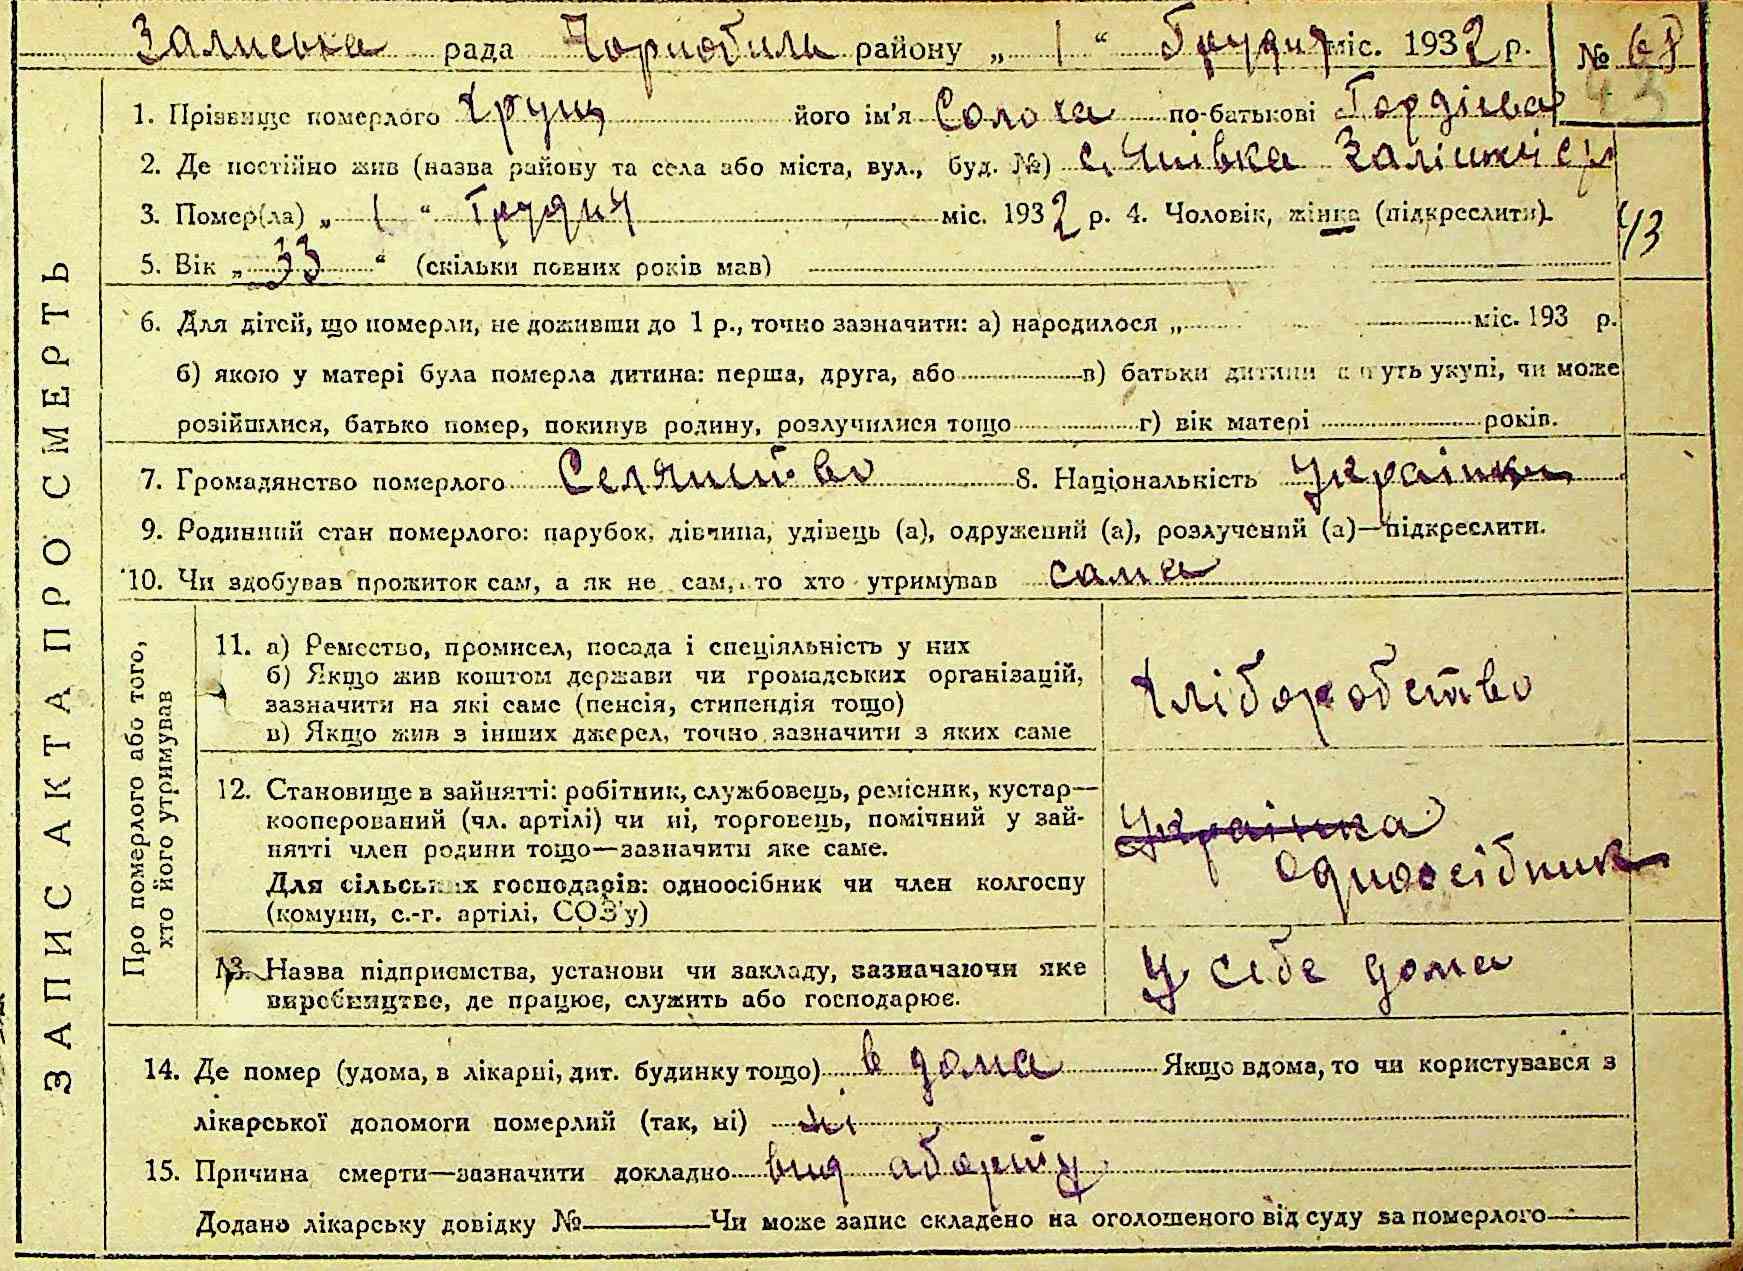 Залиська рада Чорнобиль району „ 1 “ Грудня міс. 1932 р. № 68
43
1. Прізвище померлого Хрущ його ім'я Солоха по-батькові Гордієва
2. Де постійно жив (назва району та села або міста, вул., буд. №) с. Янівка
3. Помер(ла) „ 1 “ Грудня міс. 1932 р. 4. Чоловік, жінка (підкреслити).
43
5. Вік „ 33 “ (скільки повних років мав)
6. Для дітей, що померли, не доживши до 1 р., точно зазначити: а) народилося „ міс. 193 р.
б) якою у матері була померла дитина: перша, друга, або в) батьки дитини уть укупі, чи може
розійшлися, батько помер, покинув родину, розлучилися тощо г) вік матері років.
7. Громадянство померлого Селянство 8. Національність Українка
9. Родинний стан померлого: парубок, дівчина, удівець (а), одружений (а), розлучений (а)—підкреслити.
10. Чи здобував прожиток сам, а як не сам, то хто утримував сама
ЗАПИС АКТА ПРО СМЕРТЬ
Про померлого або того,
хто його утримував
11. а) Ремество, промисел, посада і спеціяльність у них
б) Якщо жив коштом держави чи громадських організацій,
зазначити на які саме (пенсія, стипендія тощо)
в) Якщо жив з інших джерел, точно зазначити з яких саме
Хліборобство
12. Становище в зайнятті: робітник, службовець, ремісник, кустар—
кооперований (чл. артілі) чи ні, торговець, помічний у зай-
нятті член родини тощо—зазначити яке саме.
Для сільських господарів: одноосібник чи член колгоспу
(комуни, с.-г. артілі, СОЗ'у)
Українка
одноосібник
13. Назва підприємства, установи чи закладу, зазначаючи яке
виробництво, де працює, служить або господарює.
У себе дома
14. Де помер (удома, в лікарні, дит. будинку тощо) в дома Якщо вдома, то чи користувався з
лікарської допомоги померлий (так, ні) ні
15. Причина смерти—зазначити докладно вид аборту
Додано лікарську довідку № Чи може запис складено на оголошеного від суду за померлого